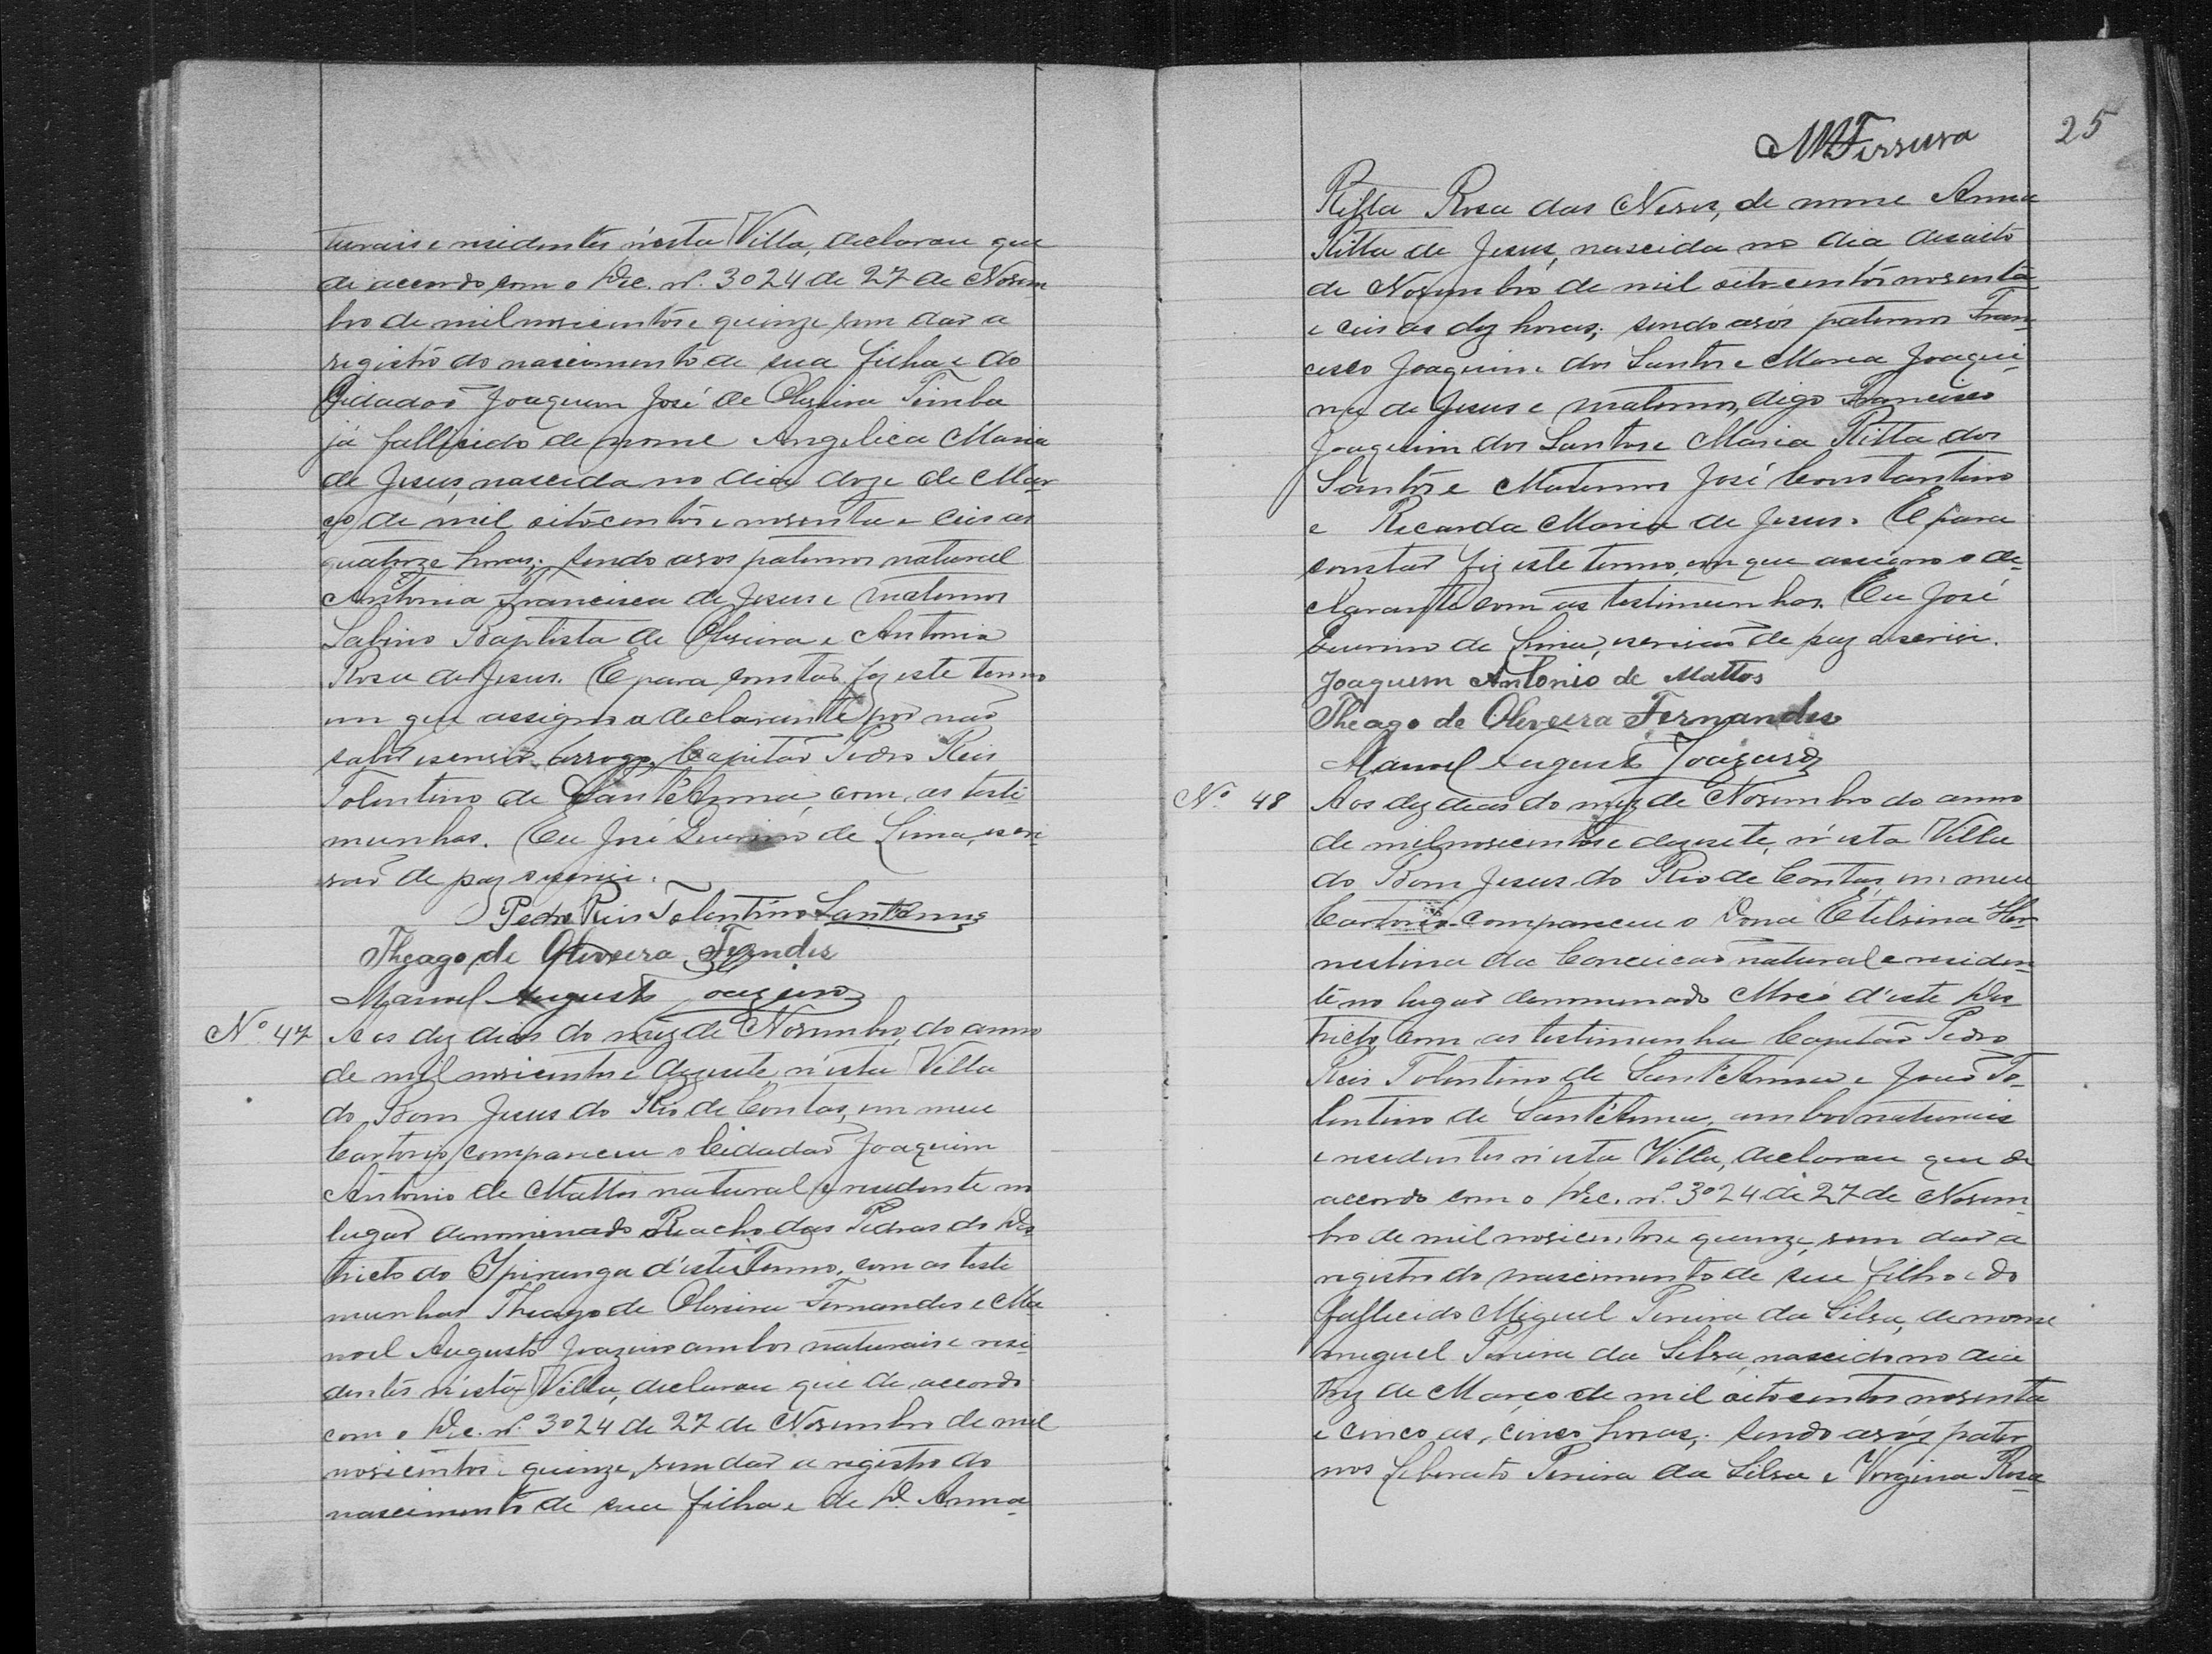 turais e residentes n'esta Villa, declarou que
de accordo com o Dec. nº. 3024 de 27 de Novem
bro de mil novicentos e quinze, vem dar a
registro do nascimento de sua filha e do
Cidadaõ Joaquim José de Oliveira Timba
já fallicido de nome Angelica Maria
de Jesus, nascida no dia doze de Mar
ço de mil oitocentos e noventa e ceis as
quatorze horas; sendo avos paternos natural
Antonia Francisca de Jesus e maternos
Sabino Baptista de Oliveira e Antonia
Rosa de Jesus. E para constar fiz este termo
em que assigna a declarante por naõ
saber escrever arrogo, Capitaõ Pedro Reis
Tolentino de Sant'Anna, com as testi
munhas. Eu José Quirino de Lima, escri
vaõ de paz o escrivi.
Pedro Reis Tolentino Sant'Anna
Theago de Oliveira Ferndes
Manoel Augusto Joazeiro
Nº 47 Aos dez dias do mez de Novembro, do anno
de mil novicentos e dezesete, n'esta Villa
do Bom Jesus do Rio de Contas, em meu
Cartorio, compareceu o Cidadaõ Joaquim
Antonio de Mattos natural e residente no
lugar denominado Riacho das Pedras do Des
tricto do Ypiranga d'este Termo, com as testi
munhas Theago de Oliveira Fernandes e Ma
noel Augusto Joazeiro ambos naturais e resi
dentes n'esta Villa, declarou que de accordo
com o Dec. nº. 3024 de 27 de Novembro de mil
novicentos e quinze, vem dar a registro do
nascimento de sua filha e de D. Anna
MMFerrera
25
Ritta Rosa das Neves, de nome Anna
Ritta de Jesus, nascida no dia desoito
de Novembro de mil oitocentos noventa
e ceis as dez horas; sendo avós paternos Fran
cisco Joaquim dos Santos e Maria Joaqui
na de Jesus e maternos, digo Francisco
Joaquim dos Santos e Maria Ritta dos
Santos e Maternos José Constantino
e Ricarda Maria de Jesus. E para
constar fiz este termo, em que assigno o de
clarante com as testimunhas. Eu José
Quirino de Lima, escrivaõ de paz o escrivi.
Joaquim Antonio de Mattos
Theago de Oliveira Fernandes
Manoel Augusto Joazeiro
Nº 48 Aos dez dias do mez de Novembro do anno
de mil novicentos e dezesete, n'esta Villa
do Bom Jesus do Rio de Contas, em meu
Cartorio compareceu o Dona Etelvina Her
nestina da Conceicaõ natural e residen
te no lugar denominado Mocó d'este Des
tricto, com as testimunha Capitaõ Pedro
Reis Tolentino de Sant'Anna e Joaõ To
lentino de Sant'Anna, ambos naturais
e residentes n'esta Villa, declarou que de
accordo com o Dec. nº. 3024 de 27 de Novem
bro de mil novicentos e quinze, vem dar a
registro do nascimento de seu filho e do
fallicido Miguel Pereira da Silva, de nome
Miguel Pereira da Silva, nascido no dia
trez de Março de mil oitocentos noventa
e cinco as, cinco horas; sendo avós pater
nos Liberato Pereira da Silva e Virgina Rosa